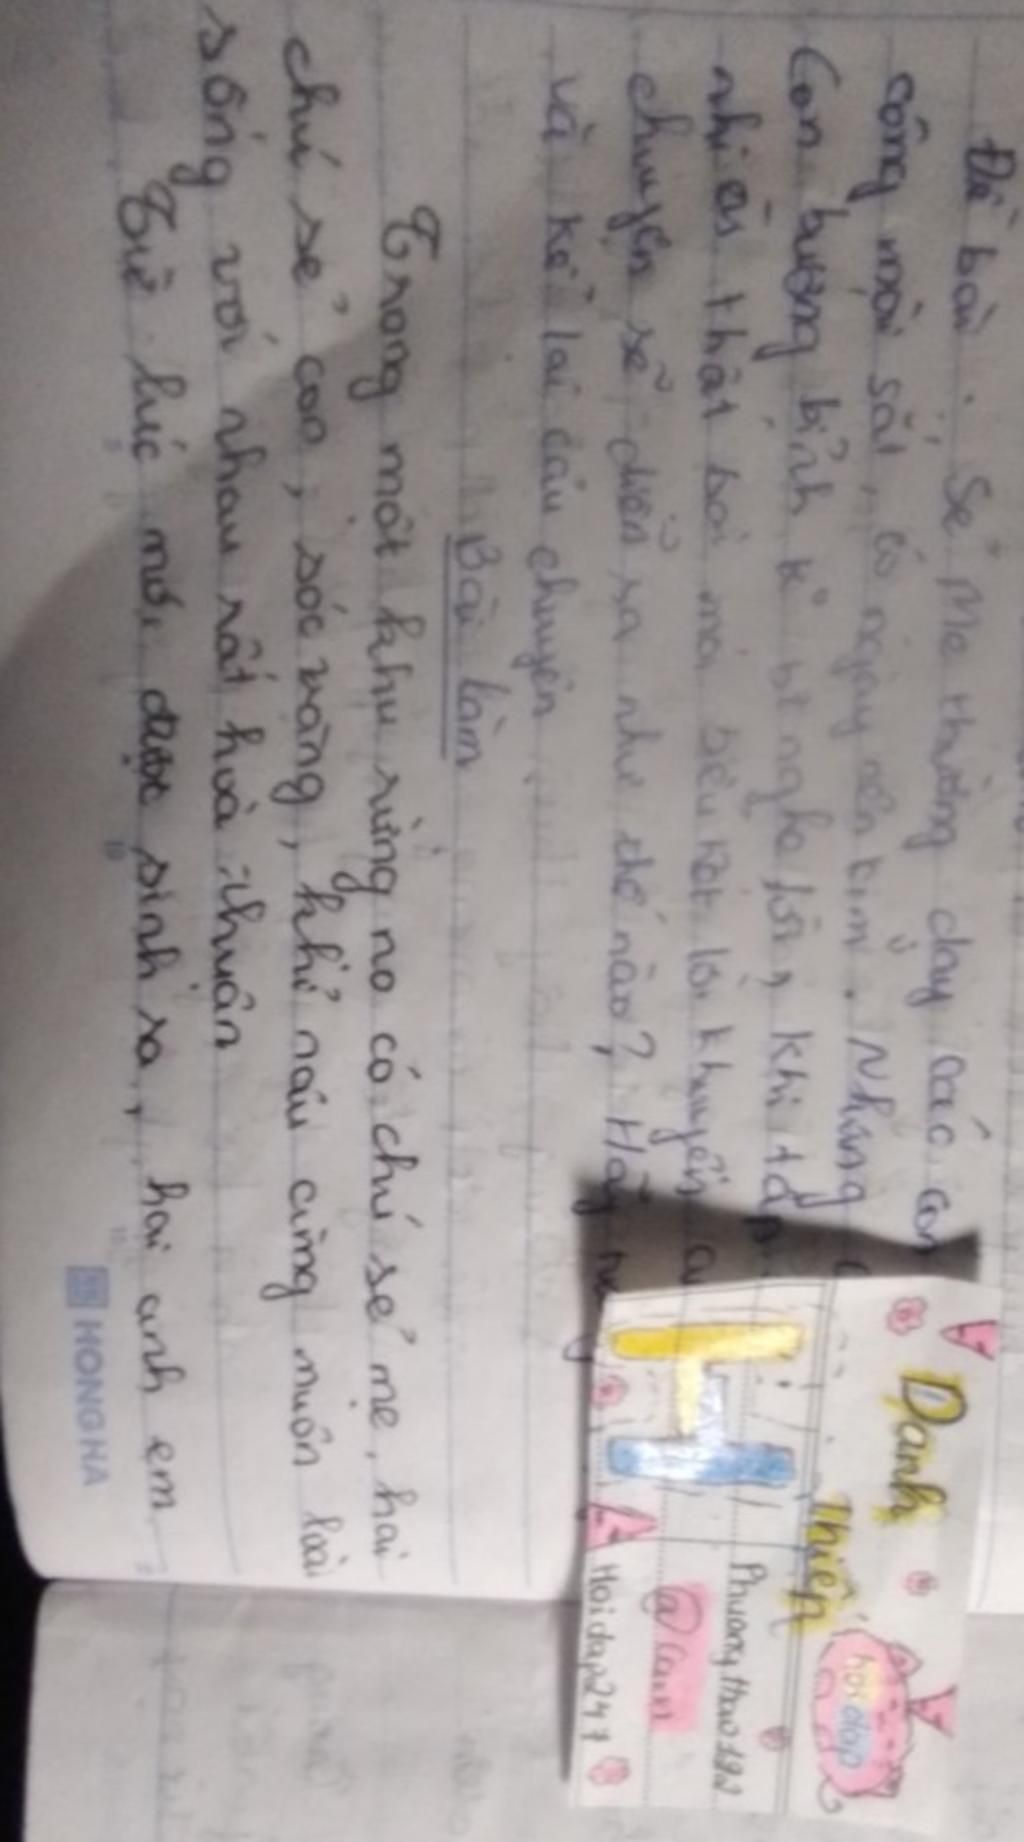 Đề bài : Sẻ Mẹ thường dạy các con
công mài sắt, có ngày nên kim. Nhưng
Con bướng bỉnh k bị nghe lời, khi tập
nhiên thất bại mới biết lời khuyên
chuyện sẽ diễn ra như thế nào? Hãy
và kể lại câu chuyện.
Bài làm
Trong một khu rừng nọ có chú sẻ mẹ, hai
chú sẻ con, sóc vàng, khỉ nâu cùng muôn loài
sống với nhau rất hoà thuận
Từ lúc mới được sinh ra, hai anh em
HONG HA
Danh
Thiếp
hỏi đáp
Phuongthao182
@Cain
Hoidap247